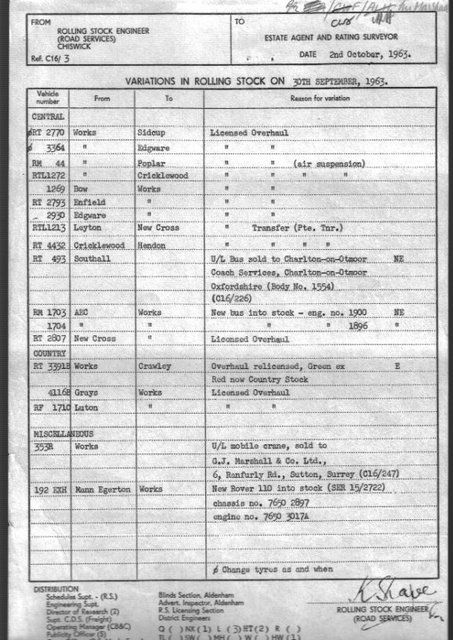 FROM
ROLLING STOCK ENGINEER
(ROAD SERVICES)
CHISWICK
Ref. C16/ 3
TO
ESTATE AGENT AND RATING SURVEYOR
DATE 2nd October, 1963.
VARIATIONS IN ROLLING STOCK ON 30TH SEPTEMBER, 1963.
Vehicle number From To Reason for variation
CENTRAL
ø RT 2770 Works Sidcup Licensed Overhaul
ø 3364 " Edgware " "
RM 44 " Poplar " " (air suspension)
RTL1272 " Cricklewood " " " "
1269 Bow Works " "
RT 2793 Enfield " " "
2930 Edgware " " "
RTL1213 Leyton New Cross " Transfer (Pte. Tnr.)
RT 4432 Cricklewood Hendon " " " "
RT 493 Southall U/L Bus sold to Charlton-on-Otmoor NE
Coach Services, Charlton-on-Otmoor
Oxfordshire (Body No. 1554)
(C16/226)
RM 1703 AEC Works New bus into stock - eng. no. 1900 NE
1704 " " " " 1896 "
RT 2807 New Cross " Licensed Overhaul
COUNTRY
RT 3391B Works Crawley Overhaul relicensed, Green ex E
Red now Country Stock
4116B Grays Works Licensed Overhaul
RF 171C Luton " " "
MISCELLANEOUS
353R Works U/L mobile crane, sold to
G.J. Marshall & Co. Ltd.,
6, Ranfurly Rd., Sutton, Surrey (C16/247)
192 EXH Mann Egerton Works New Rover 110 into stock (SER 15/2722)
chassis no. 7650 2897
engine no. 7650 3017A
ø Change tyres as and when
DISTRIBUTION
Schedules Supt. - (R.S.)
Engineering Supt.
Director of Research (2)
Supt. C.D.S. (Freight)
Operating Manager (CB&C)
Publicity Officer (5)
Blinds Section, Aldenham
Advert. Inspector, Aldenham
R.S. Licensing Section
District Engineers
Q ( ) NX(1) L (3) HT(2) R ( )
K Shave
ROLLING STOCK ENGINEER
(ROAD SERVICES)